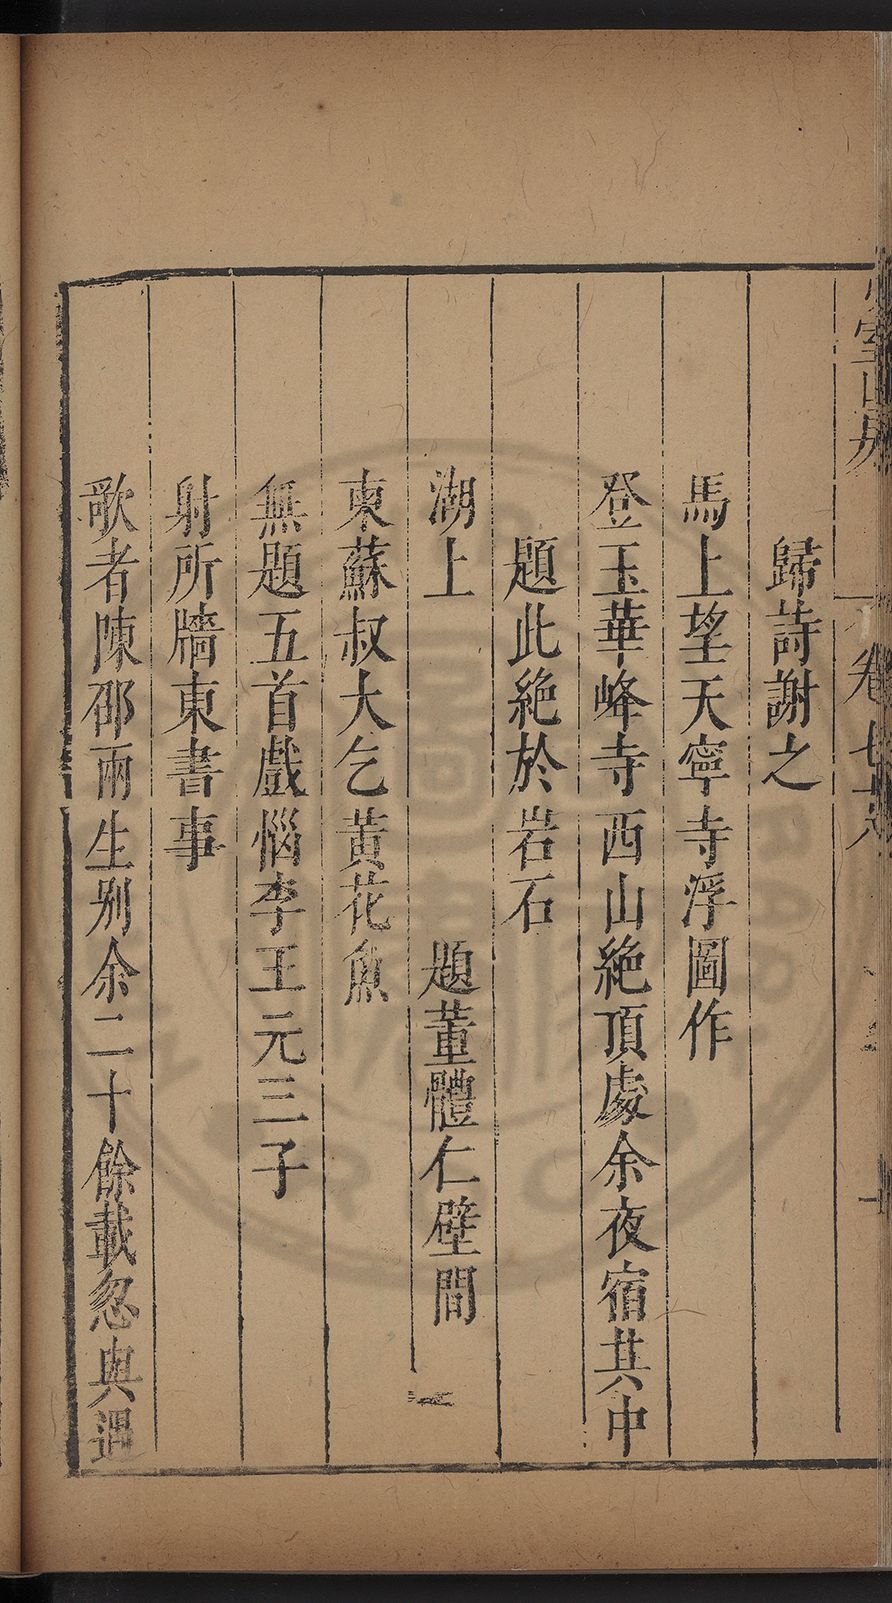 歸詩謝之
馬上望天寧寺浮圖作
登玉華峰寺西山絶頂處余夜宿其中
題此絶於岩石
湖上　題董體仁壁間
柬蘇叔大乞黃花魚
無題五首戲惱李王元三子
射所牆東書事
歌者陳邵兩生别余二十餘載忽與遇